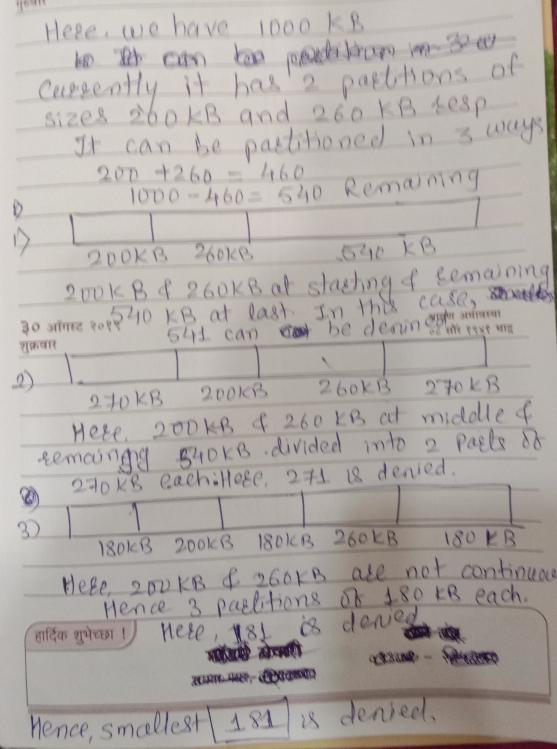 गुरुवार
Here, we have 1000 KB
Currently it has 2 partitions of
sizes 200KB and 260 KB resp.
It can be partitioned in 3 ways
200 + 260 = 460
1000 - 460 = 540 Remaining
1)
200KB 260KB 540 KB
200KB & 260KB at starting & remaining
540 KB at last. In this case,
३० ऑगस्ट २०१९
541 can be denined
शुक्रवार
2)
270KB 200KB 260KB 270KB
Here, 200KB & 260 KB at middle &
remaingng 540KB divided into 2 parts of
270 KB each. Here, 271 is denied.
3)
180KB 200KB 180KB 260KB 180 KB
Here, 200KB & 260KB are not continuous
Hence 3 partitions of 180 KB each.
हार्दिक शुभेच्छा !
Here, 181 is denied
Hence, smallest 181 is denied.